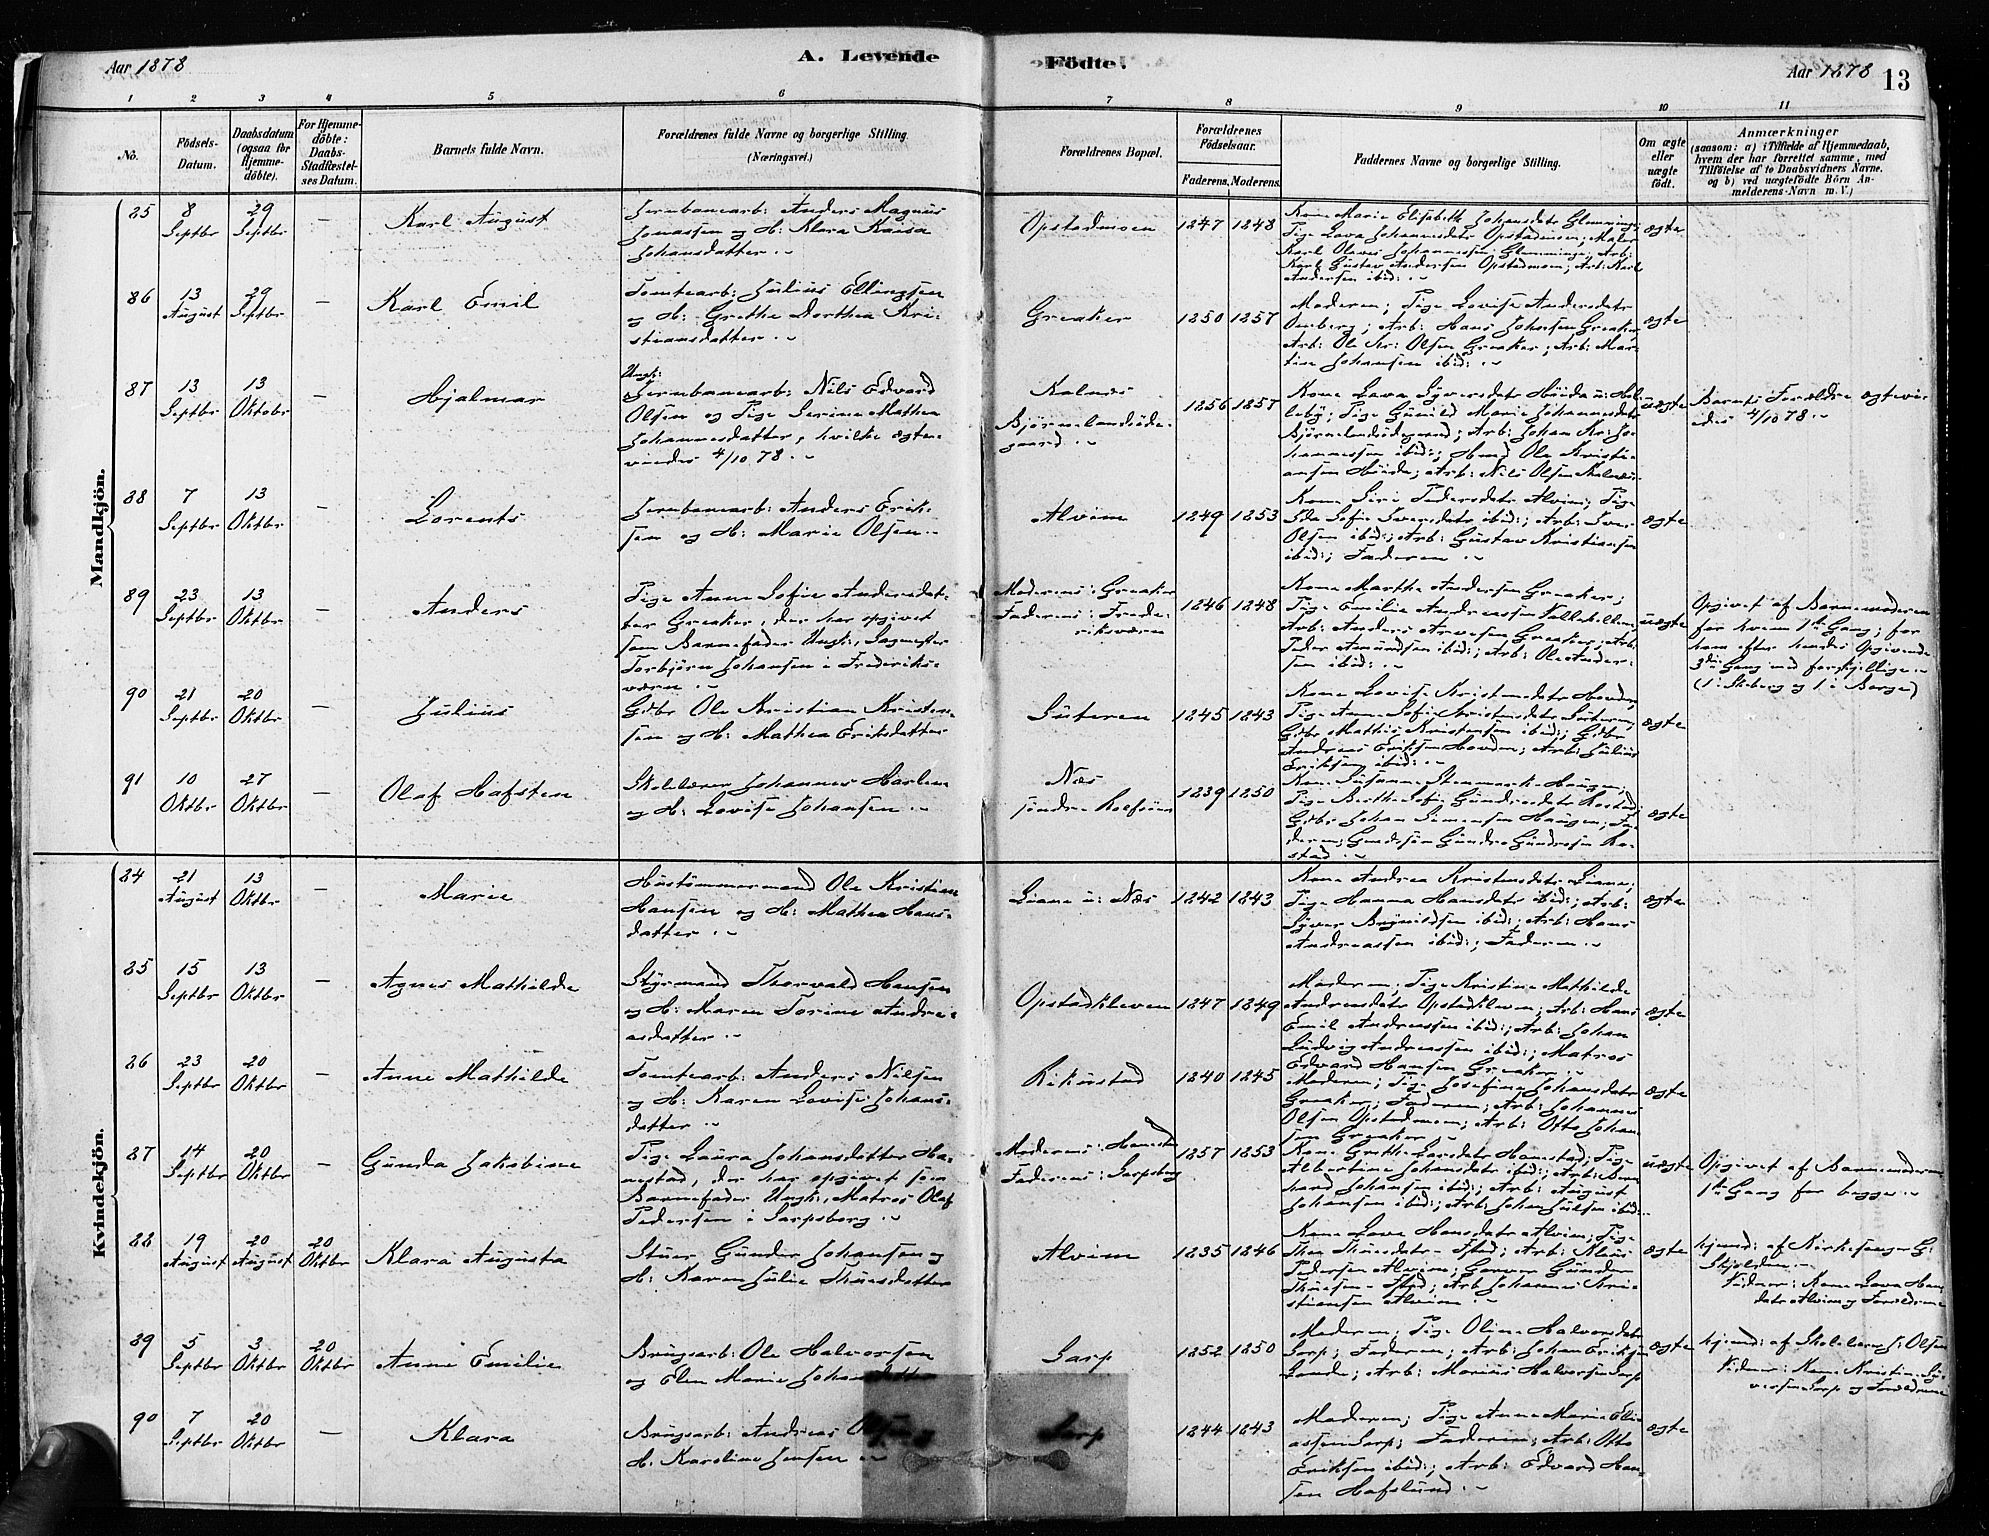 Aar 1878
A. Levende Födte.
Aar 1878 13
1 2 3 4 5 6 7 8 9 10 11
No.
Födsels-Datum.
Daabsdatum (ogsaa for Hjemme-döbte).
For Hjemme-döbte: Daabs-Stadfæstel-ses Datum.
Barnets fulde Navn.
Forældrenes fulde Navne og borgerlige Stilling.
(Næringsvei.)
Forældrenes Bopæl.
Forældrenes Födselsaar.
Faderens. Moderens.
Faddernes Navne og borgerlige Stilling.
Om ægte eller uægte födt.
Anmærkninger
(saasom: a) i Tilfælde af Hjemmedaab,
hvem der har forrettet samme, med
Tilföielse af to Daabsvidners Navne,
og b) ved uægtefödte Börn An-
melderens Navn m. V.)
Mandkjön.
85 8 Septbr 29 Septbr – Karl August
Jernbanearb: Anders Magnus
Jonassen og H: Klara Kaisa
Johansdatter.
Opstadmoen 1847 1848
Kone Marie Elisabeth Johansdatr Glemminge;
Pige Lava Johannesdatr Opstadmoen; Maler
Karl Olaves Johannessen Glemminge; Arb:
Karl Gustav Andersen Opstadmoen; Arb: Karl
Andersen ibid:
ægte
86 13 August 29 Septbr – Karl Emil
Tomtearb: Julius Ellingsen
og H: Grethe Dorthea Kri-
stiansdatter.
Greaker 1850 1857
Moderen; Pige Lovise Andersdatr
Arb: Hans Johnsen Greaker;
Arb: Ole Kr: Olsen Greaker; Arb: Mar-
tin Johansen ibid:
ægte
87 13 Septbr 13 Oktobr – Hjalmar
Ungk:
Jernbanearb: Nils Edvard
Olsen og Pige Serine Mathea
Johannesdatter, hvilke ægte-
viedes 4/10 78.
Kalnæs
Bjørnelandsøde-
gaard
1856 1857
Kone Lava Syversdatr Höida u: Hol-
leby; Pige Gunild Marie Johannesdatr
Bjørnelandsødegaard; Arb: Johan Kr: Jo-
hannessen ibid:; Hmd Ole Kristi-
ansen Höida; Arb: Nils Olsen Kalnæs.
uægte
Barnets Forældre ægtevi-
edes 4/10 78.
88 7 Septbr 13 Oktbr – Lorents
Jernbanearb: Anders Erik-
sen og H: Marie Olsen.
Alvim 1849 1853
Kone Siri Pedersdatr Alvim; Pige
Ida Sofie Iversdatr ibid:; Arb: Iver
Olsen ibid:; Arb: Gustav Kristiansen
ibid:; Faderen.
ægte
89 23 Septbr 13 Oktbr – Anders
Pige Anne Sofie Andersdat-
ter Greaker, der har opgivet
som Barnefader Ungk: Sagmester
Torbjørn Johansen i Frederiks-
værn.
Moderens: Greaker
Faderens: Frede-
riksværn
1846 1848
Kone Marthe Andersen Greaker;
Pige Emilie Andreassen
Arb: Anders Arvesen Greaker; Arb:
Peder Amundsen ibid:; Arb: Ole Ander-
sen ibid:
uægte
Opgivet af Barnemoderen
for hvem 1ste Gang; for
ham efter hendes Opgivende
3die Gang med forskjellige.
(1 i Skeberg og 1 i Borge)
90 21 Septbr 20 Oktbr – Julius
Gdbr Ole Kristian Kristen-
sen og H: Mathea Eriksdatter
Suteren 1845 1843
Kone Lovise Kristensdatr Hovden;
Pige Anne Sofie Kristensdatr Suteren;
Gdbr Mathis Kristensen ibid:; Gdbr
Andreas Eriksen Hovden; Arb: Julius
Eriksen ibid:
ægte
91 10 Oktbr 27 Oktbr – Olaf Hafsten
Skolelærer Johannes Harlem
og H: Lovise Johansen.
Næs
søndre Rolfsöen
1839 1850
Kone Susanne Stenmark Haugen;
Pige Berthe Sofie Gundersdatr Rostad;
Gdbr Johan Simensen Haugen; Fa-
deren; Gaardssøn Gunder Gundersen Ro-
stad.
ægte
Kvindekjön.
84 21 August 13 Oktbr – Marie
Hustømmermand Ole Kristian
Hansen og H: Mathea Hans-
datter.
Liane u: Næs 1842 1843
Kone Andrea Kristensdatr Liane;
Pige Hanna Hansdatr ibid:; Arb:
Syver Brynildsen ibid:; Arb: Hans
Andreassen ibid:; Faderen.
ægte
85 15 Septbr 13 Oktbr – Agnes Mathilde
Styrmand Thorvald Hansen
og H: Maren Torine Andre-
asdatter.
Opstadkleven 1847 1849
Moderen; Pige Kristine Mathilde
Andreasdatr Opstadkleven; Arb: Hans
Emil Andreassen ibid:; Arb: Johan
Ludvig Andreassen ibid:; Matros
Edvard Hansen Greaker.
ægte
86 23 Septbr 20 Oktbr – Anne Mathilde
Tomtearb: Anders Nilsen
og H: Karen Lovise Johans-
datter.
Rikustad 1840 1845
Moderen; Pige Josefine Johansdatr
Greaker; Faderen; Arb: Johannes
Olsen Opstadmoen; Arb: Otto Johan-
sen Greaker.
ægte
87 14 Septbr 20 Oktbr – Gunda Jakobine
Pige Laura Johansdatter Ha-
nestad, der har opgivet som
Barnefader Ungk: Matros Olaf
Pedersen i Sarpsborg.
Moderens: Hanestad
Faderens: Sarpsborg
1857 1853
Kone Grethe Larsdatr Hanestad; Pige
Albertine Johansdatr ibid:; Arb: Bern-
hard Johansen ibid:; Arb: August
Johansen ibid:; Arb: Johan Julsen ibid:
uægte
Opgivet af Barnemoderen
1ste Gang for begge.
88 19 August 20 August 20 Oktbr Klara Augusta
Stuer Gunder Johansen og
H: Karen Julie Thuesdatter
Alvim 1835 1846
Kone Lava Hansdatr Alvim; Pige
Thea Thuesdatr Isted; Arb: Klaus
Pedersen Alvim; Garver Gunder
Thuesen Isted; Arb: Johannes Kri-
stiansen Alvim.
ægte
hjemd: af Kirkesanger G:
Skjolden.
Vidner: Kone Lava Hans-
datr Alvim og Forældrene
89 5 Septbr 3 Oktbr 20 Oktbr Anne Emilie
Brugsarb: Ole Halvorsen
og Elen Marie Johansdatter
Sarp 1852 1850
Moderen; Pige Oline Halvorsdatr
Sarp; Faderen; Arb: Johan Eriksen
Lande; Arb: Marius Halvorsen Sarp
ægte
hjemd: af Skolelærer J: Olsen
Vidner: Kone Kristine Sy-
versen Sarp og Forældrene
90 7 Septbr 20 Oktbr – Klara
Brugsarb: Andreas Olsen og
H: Karoline Jensen.
Sarp 1844 1843
Moderen; Pige Anne Marie Eli-
assen Sarp; Faderen; Arb: Otto
Eriksen ibid:; Arb: Edvard Han-
sen Hafslund.
ægte